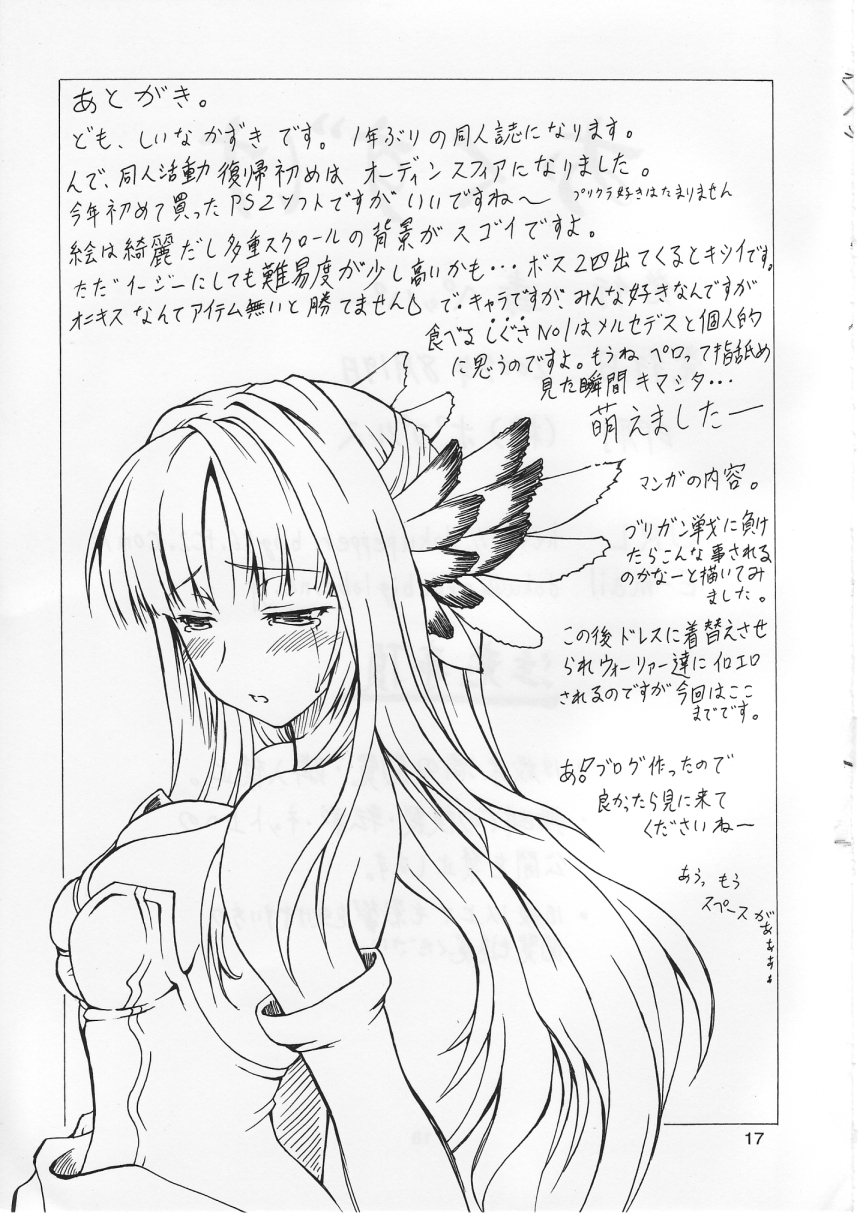 あとがき。
ども、しいなかずきです。1年ぶりの同人誌になります。
んで、同人活動復帰初めはオーディンスフィアになりました。
今年初めて買ったPS2ソフトですがいいですね〜 プリクラ好きはたまりません
絵は綺麗だし多重スクロールの背景がスゴイですよ。
ただイージーにしても難易度が少し高いかも・・・ボス2匹出てくるとキツイです。
オニキスなんてアイテム無いと勝てません で、キャラですが、みんな好きなんですが
食べるしぐさNo1はメルセデスと個人的
に思うのですよ。もうね ペロって指舐め
見た瞬間キマシタ・・・
萌えましたー
マンガの内容。
ブリガン戦に負け
たらこんな事される
のかなーと描いてみ
ました。
この後ドレスに着替えさせ
られウォーリアー達にイロエロ
されるのですが今回はここ
までです。
あ!ブログ作ったので
良かったら見に来て
くださいねー
あぅ、もう
スペースがぁぁぁぁ
17